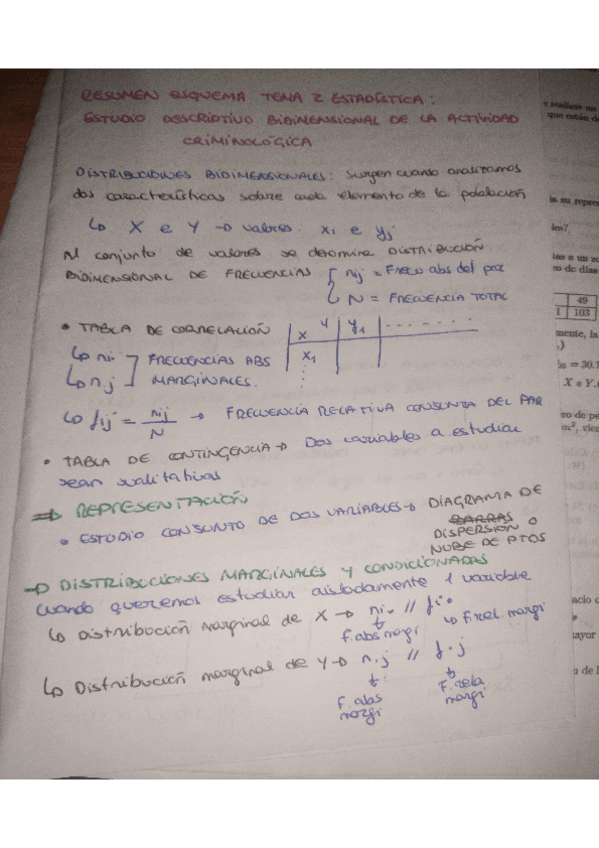 RESUMEN ESQUEMA TEMA 2 ESTADÍSTICA:
ESTUDIO DESCRIPTIVO BIDIMENSIONAL DE LA ACTIVIDAD
CRIMINOLÓGICA
DISTRIBUCIONES BIDIMENSIONALES: Surgen cuando analizamos
dos características sobre cada elemento de la población
↳ X e Y → valores. xi e yj
Al conjunto de valores se denomina DISTRIBUCIÓN
BIDIMENSIONAL DE FRECUENCIAS { nij = Frecu abs del par
N = FRECUENCIA TOTAL
• TABLA DE CORRELACIÓN x y y1 .......
↳ ni· ] FRECUENCIAS ABS x1
↳ n.j ] MARGINALES.
↳ fij = nij/N → FRECUENCIA RELATIVA CONJUNTA DEL PAR
• TABLA DE CONTINGENCIA → Dos variables a estudiar
sean cualitativas
⇒ REPRESENTACIÓN
• ESTUDIO CONJUNTO DE DOS VARIABLES → DIAGRAMA DE
BARRAS
DISPERSIÓN O
NUBE DE PTOS
→ DISTRIBUCIONES MARGINALES Y CONDICIONADAS
cuando queremos estudiar aisladamente 1 variable
↳ Distribución marginal de X → ni. // fi.
F.abs margi ↳ F.rel margi
↳ Distribución marginal de Y → n.j // f.j
F. abs margi F. rela margi
e realizar un
que están d
la su repre
los?
no de días
49
1 103
mente, la
X e Y.
ro de pe
acio
ayor
a de